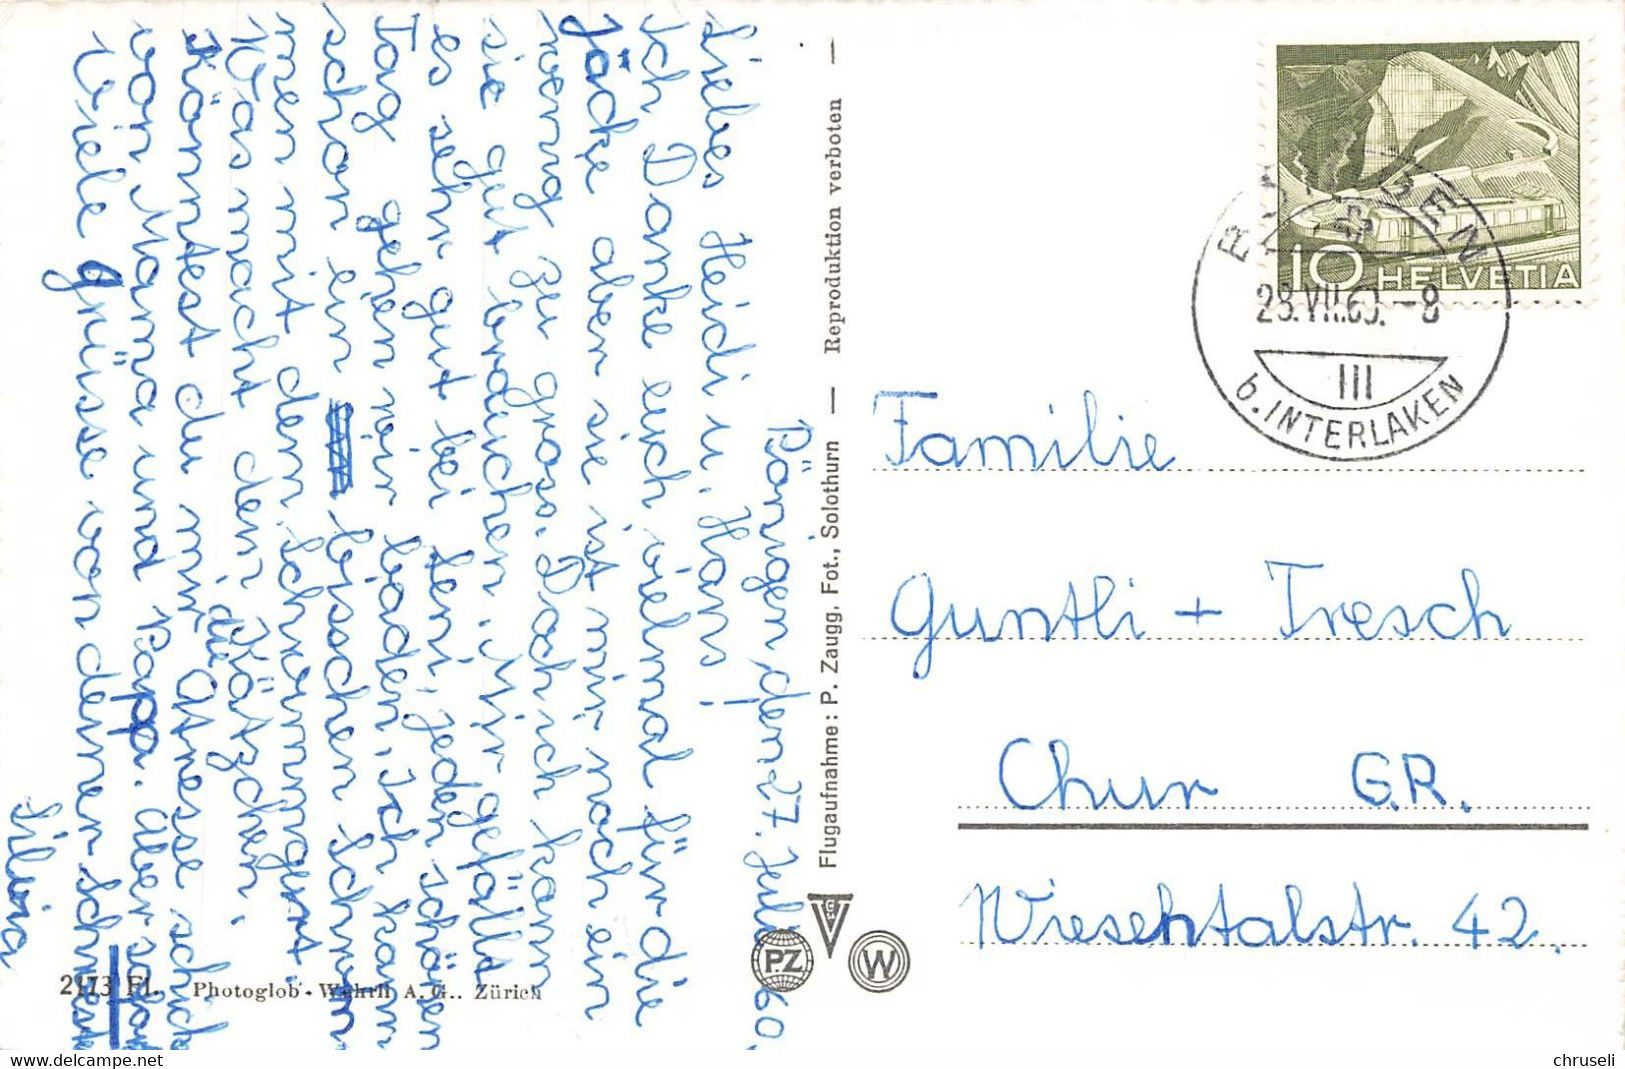 Bönigen den 27. Juli 60.
Liebes Heidi u. Hans!
Ich Danke euch vielmal für die
Jacke aber sie ist mir noch ein
wenig zu gross. Doch ich kann
sie gut brauchen. Mir gefällt
es sehr gut bei Leni, jeden schönen
Tag gehen wir baden. Ich kann
schon ein bisschen schwim
men mit dem Schwimmgurt.
Was macht den Kätzchen.
Könntest du mir die Adresse schick
von Mama und Papa. Aber
Viele grüsse von deiner Schwest
Silvia
2173 Fl. Photoglob-Wehrli A.G.. Zürich
Flugaufnahme: P. Zaugg. Fot., Solothurn — Reproduktion verboten —
PZ
W
10 HELVETIA
23.VII.60.-8
III
b. INTERLAKEN
Familie
Guntli + Tresch
Chur G.R.
Wiesentalstr. 42.
chruseli